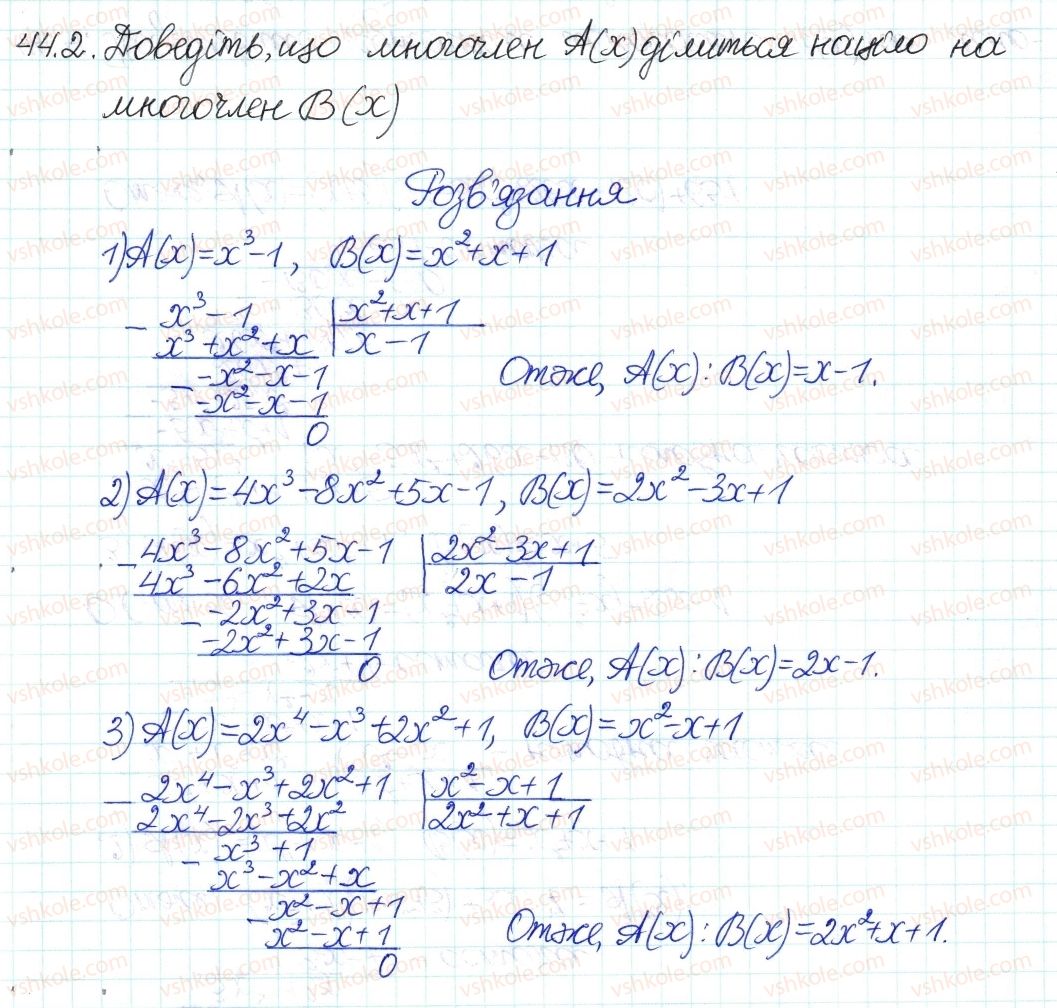 44.2. Доведіть, що многочлен A(x) ділиться націло на
многочлен B(x)
Розв'язання
1) A(x)=x³-1, B(x)=x²+x+1
x³-1 | x²+x+1
x³+x²+x | x-1
-x²-x-1
-x²-x-1
0
Отже, A(x):B(x)=x-1.
2) A(x)=4x³-8x²+5x-1, B(x)=2x²-3x+1
4x³-8x²+5x-1 | 2x²-3x+1
4x³-6x²+2x | 2x-1
-2x²+3x-1
-2x²+3x-1
0
Отже, A(x):B(x)=2x-1.
3) A(x)=2x⁴-x³+2x²+1, B(x)=x²-x+1
2x⁴-x³+2x²+1 | x²-x+1
2x⁴-2x³+2x² | 2x²+x+1
x³+1
x³-x²+x
x²-x+1
x²-x+1
0
Отже, A(x):B(x)=2x²+x+1.
vshkole.com